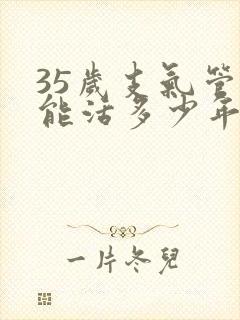 35歲支氣管
能活多少年
一片冬兒